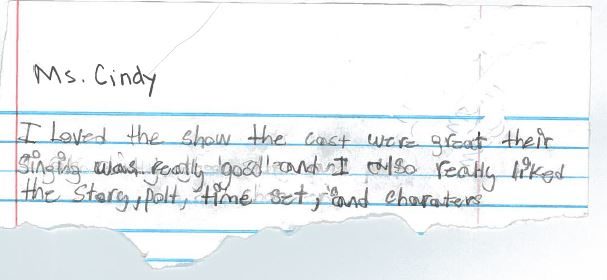 Ms. Cindy
I Loved the show the cast were great their
singing was really good and I also really liked
the story, polt, time set, and charaters